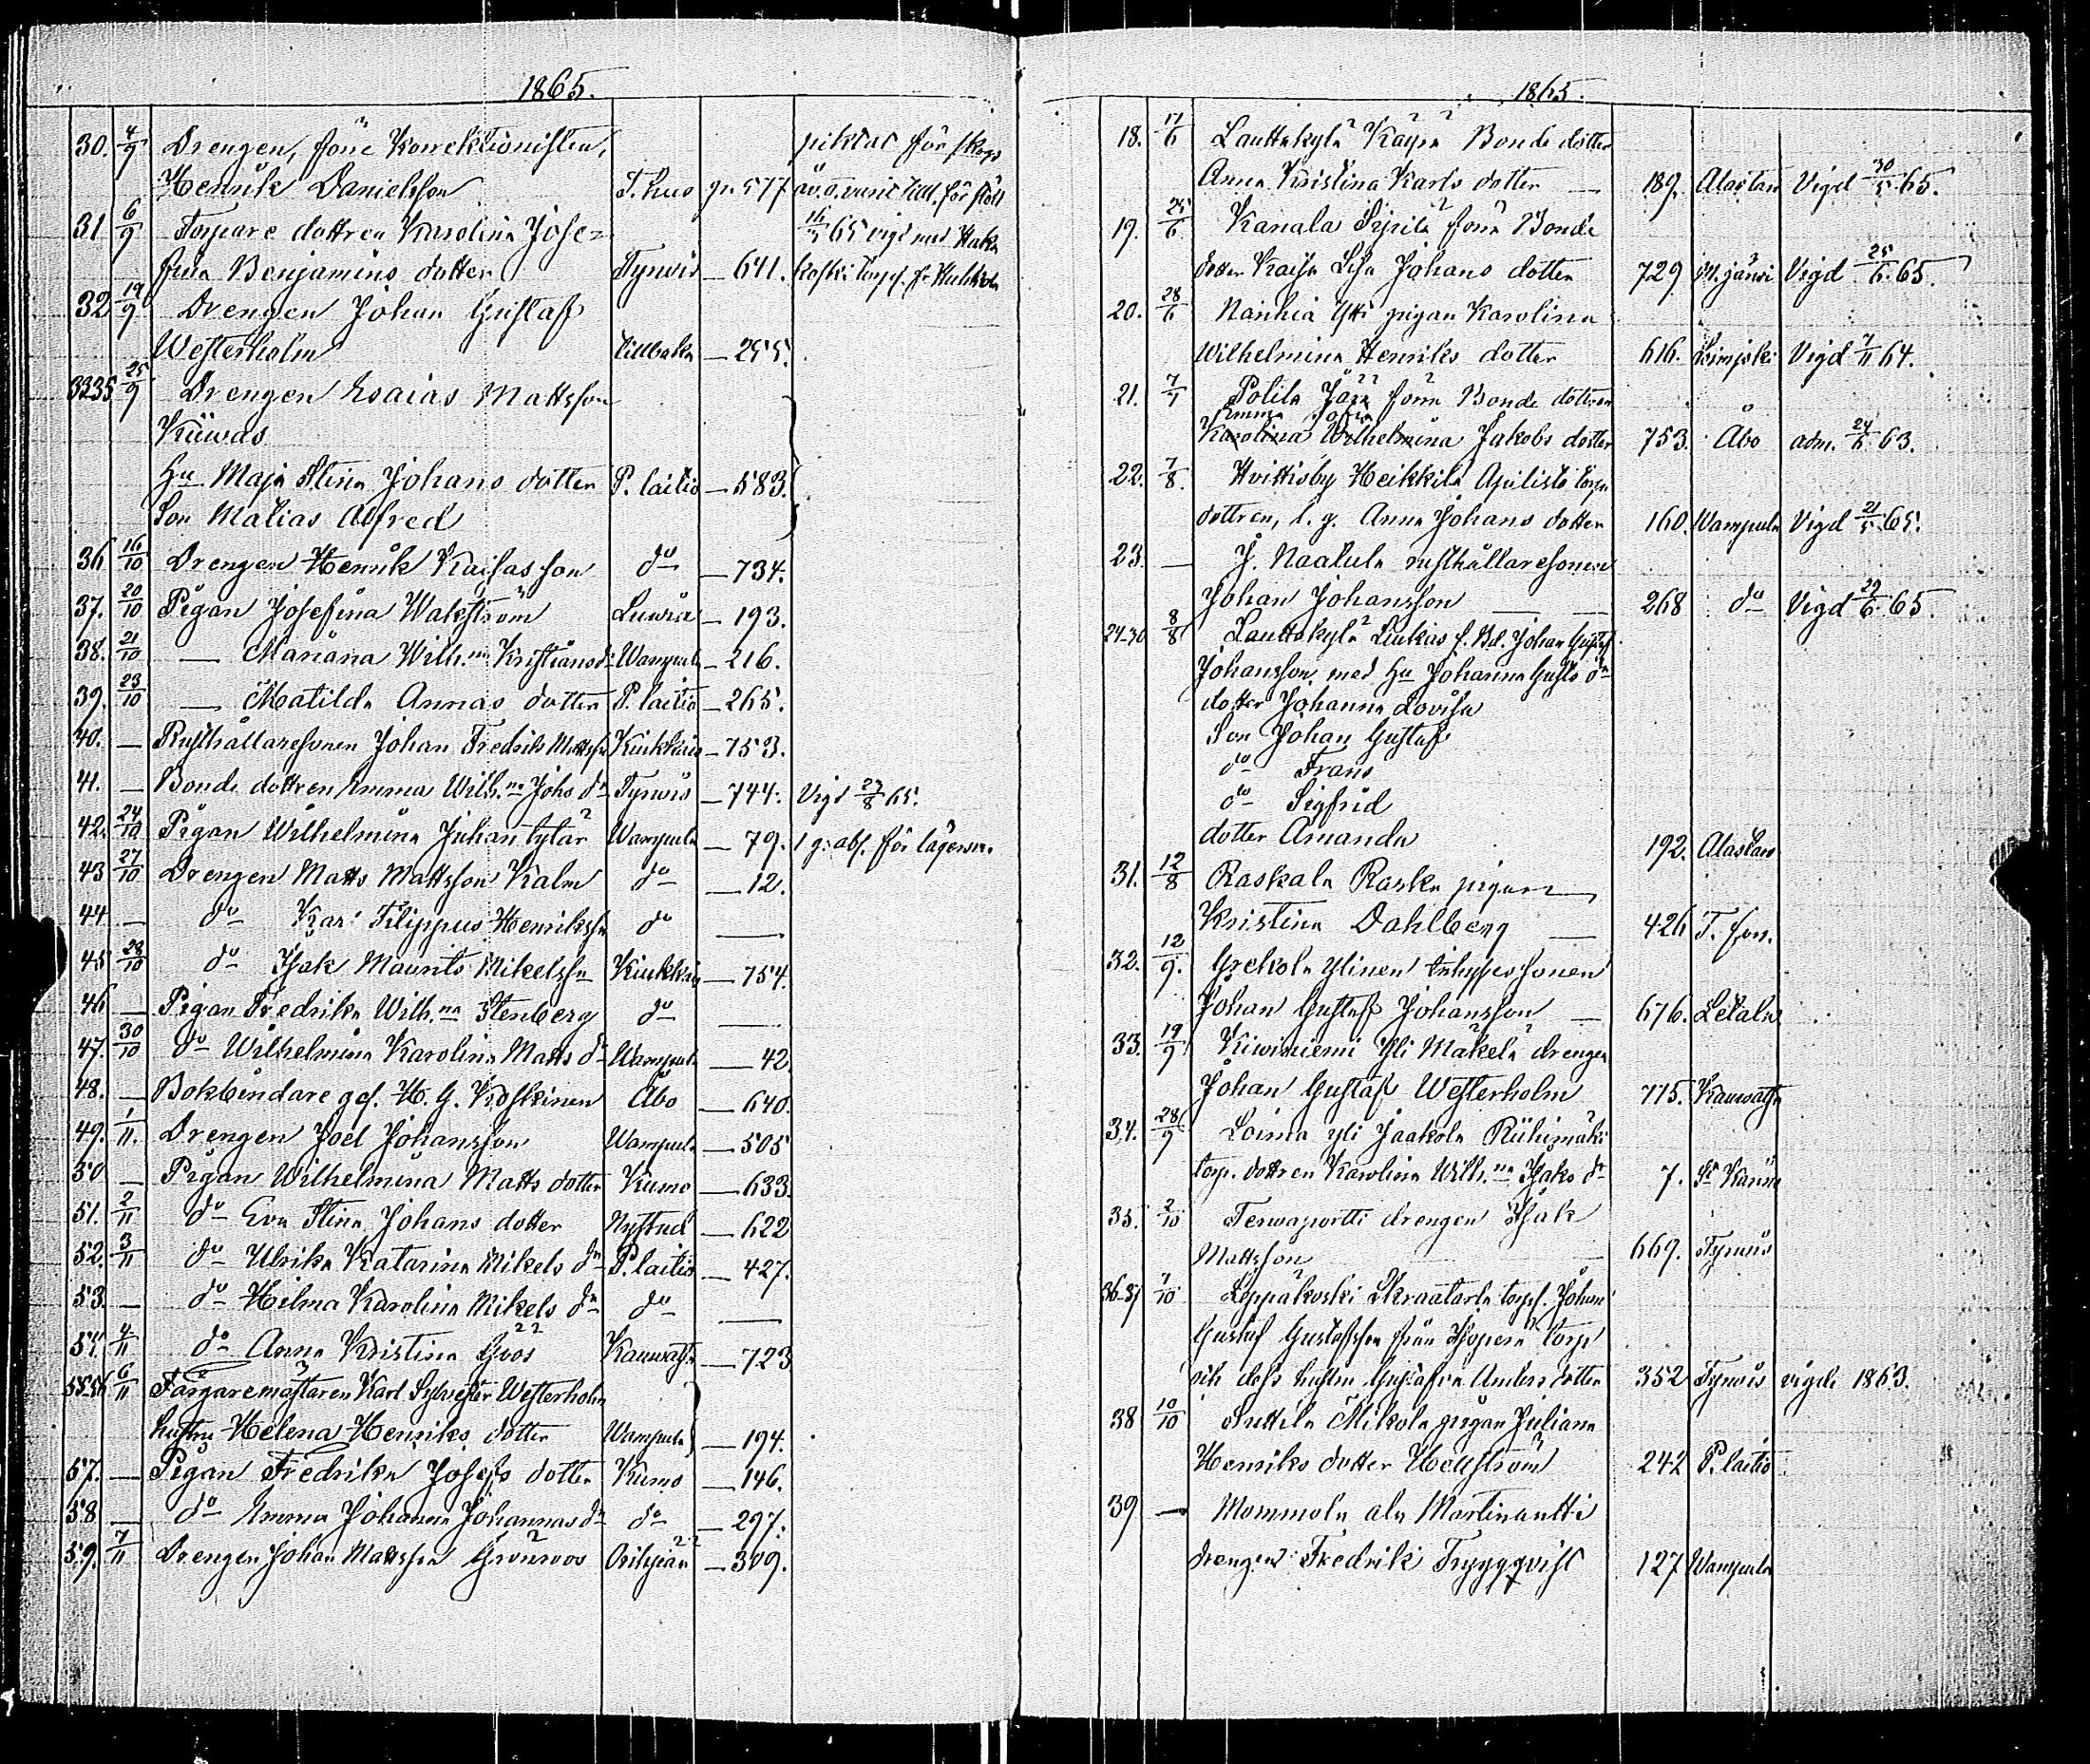 1865.
30. 4/9 Drengen, förre Korrektionisten, pliktat för skogs
Henrik Danielsson T. hus 577
31 6/9 Torpare dottren Karolina Jose=
fina Benjamins dotter Tyrwis — 641.
32 19/9 Drengen Johan Gustaf
Westerholm tillbaka — 255.
33-35 25/9 Drengen Esaias Mattsson
Kiiwas
Hu Maja Stina Johans dotter P. laitio — 583.
Son Matias Alfred
36 16/10 Drengen Henrik Kaisasson do — 734.
37. 20/10 Pigan Josefina Wakström Luwia — 193.
38. 21/10 — Mariana Wilh.na Kristians dr Wampula — 216.
39. 23/10 — Matilda Annas dotter P. laitio — 265.
40. — Rusthållaresonen Johan Fredrik Mattss. Kiukkais — 753.
41. — Bonde dottren Emma Wilh.na Johs dr Tyrwis — 744. Vigd 27/8 65.
42. 24/10 Pigan Wilhelmina Juhantytär Wampula — 79. 1 g. abs. för lägersm.
43 27/10 Drengen Matts Mattsson Kalm do — 12.
44 — do Karl Filippus Henrikss. do —
45 28/10 do Isak Maurits Mikelss. Kiukkais — 754.
46 — Pigan Fredrika Wilh.na Stenberg do —
47. 30/10 do Wilhelmina Karolina Matts dr Wampula — 42
48. — Bokbindare ges. H. G. Koskinen Åbo — 640.
49. 1/11. Drengen Joel Johansson Wampula — 505
50 — Pigan Wilhelmina Matts dotter Kumo — 633.
51. 2/11 do Eva Stina Johans dotter Nystad — 622
52. 3/11 do Ulrika Katarina Mikels dr P. laitio — 427.
53. — do Hilma Karolina Mikels dr do —
54. 4/11 do Anna Kristina Goos Kauwatsa — 723
55-56 6/11 Färgaremästaren Karl Sylvester Westerholm
hustru Helena Henriks dotter Wampula — 194.
57. — Pigan Fredrika Josefs dotter Kumo — 146.
58 — do Emma Johanna Johannas dr do — 297.
59. 7/11 Drengen Johan Mattsson Grönroos Oripää — 309.
1865.
18. 17/6 Lauttakylä Käyrä Bonde dotter
Anna Kristina Karls dotter — 189. Alastaro Vigd 30/5 65.
19. 25/6 Kanala Sipilä förre Bonde
dotter Kaisa Lisa Johans dotter 729 Vigd 25/6 65.
20. 28/6 Nanhia Ytti pigan Karolina
Wilhelmina Henriks dotter 616. Vigd 7/11 64.
21. 7/7 Polila förre Bonde dottren
Emma Sofia
Karolina Wilhelmina Jakobs dotter 753. Åbo adm. 24/6 63.
22. 7/8. Hvittisby Heikkilä torp.
dottren, l. g. Anna Johans dotter 160. Wampula Vigd 21/5 65.
23. — Naatula rusthållaresonen
Johan Johansson — 268 do Vigd 29/6 65
24-30 8/8 Lauttakylä Liukias f. Bd. Johan Gustaf
Johansson med hu Johanna Gusts dr
dotter Johanna Lovisa
Son Johan Gustaf
do Frans
do Sigfrid
dotter Amanda 192. Alastaro
31. 12/8 Raskala Raska pigan
Kristina Dahlberg — 426 T. fors.
32. 12/9. Ylinen
Johan Gustaf Johansson — 676. Letala
33. 19/9 Kiwiniemi Yli Mäkelä drengen
Johan Gustaf Westerholm 715. Kauwatsa
34. 28/9 Loima yli Jaakola Riihimäki
torp. dottren Karolina Wilh.na Isaks dr 7.
35. 2/10 drengen Isak
Mattsson — 669. Tyrwis
36-37 7/10 Leppäkoski Skraatarla torp. Johan
Gustaf Gustafsson från torp
och dess hustru Gustafva Anders dotter 352 Tyrwis vigde 1863.
38 10/10 Suttila Mikola pigan Juliana
Henriks dotter Hellström 242 P. laitio
39 — Mommola ala Martinantti
drengen Fredrik Tryggqvist 127 Wampula